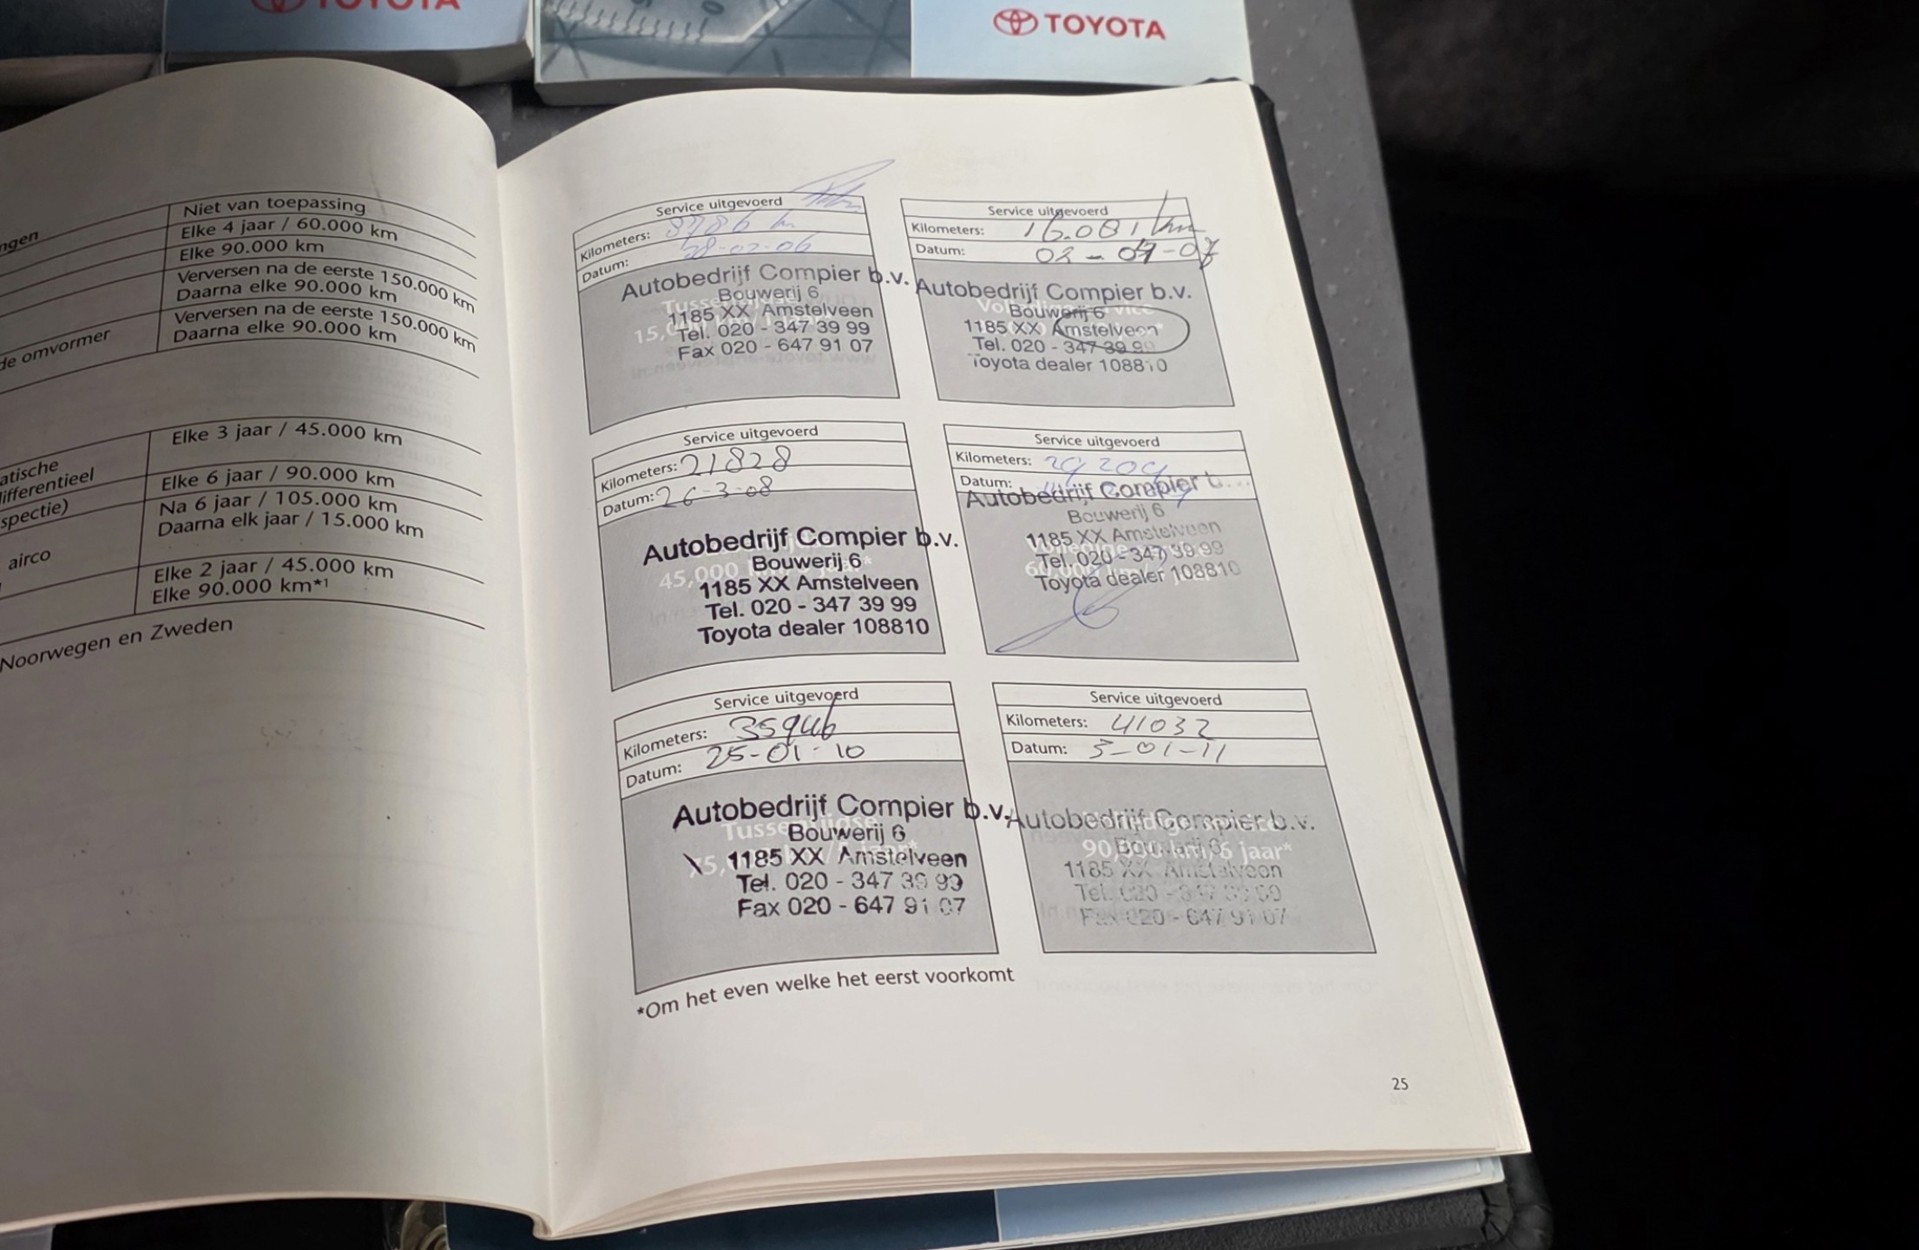 TOYOTA
TOYOTA
Niet van toepassing
Elke 4 jaar / 60.000 km
Elke 90.000 km
Verversen na de eerste 150.000 km
Daarna elke 90.000 km
Verversen na de eerste 150.000 km
de omvormer
Daarna elke 90.000 km
Elke 3 jaar / 45.000 km
atische
ifferentieel
Elke 6 jaar / 90.000 km
spectie)
Na 6 jaar / 105.000 km
Daarna elk jaar / 15.000 km
airco
Elke 2 jaar / 45.000 km
Elke 90.000 km*1
Noorwegen en Zweden
Service uitgevoerd
Kilometers:
Datum:
Autobedrijf Compier b.v.
Bouwerij 6
1185 XX Amstelveen
Tel. 020 - 347 39 99
Fax 020 - 647 91 07
Service uitgevoerd
Kilometers: 16.081 km
Datum: 02-04-07
Autobedrijf Compier b.v.
Bouwerij 6
1185 XX Amstelveen
Tel. 020 - 347 39 99
Toyota dealer 108810
Service uitgevoerd
Kilometers: 21828
Datum: 26-3-08
Autobedrijf Compier b.v.
45,000
Bouwerij 6
1185 XX Amstelveen
Tel. 020 - 347 39 99
Toyota dealer 108810
Service uitgevoerd
Kilometers: 29204
Datum:
Autobedrijf Compier
Bouwerij 6
1185 XX Amstelveen
Tel. 020 - 347 39 99
Toyota dealer 108810
Service uitgevoerd
Kilometers: 35946
Datum: 25-01-10
Autobedrijf Compier b.v.
Bouwerij 6
1185 XX Amstelveen
Tel. 020 - 347 39 99
Fax 020 - 647 91 07
Service uitgevoerd
Kilometers: 41032
Datum: 5-01-11
Autobedrijf Compier b.v.
Bouwerij 6
1185 XX Amstelveen
Tel. 020 - 347 39 99
Fax 020 - 647 91 07
*Om het even welke het eerst voorkomt
25